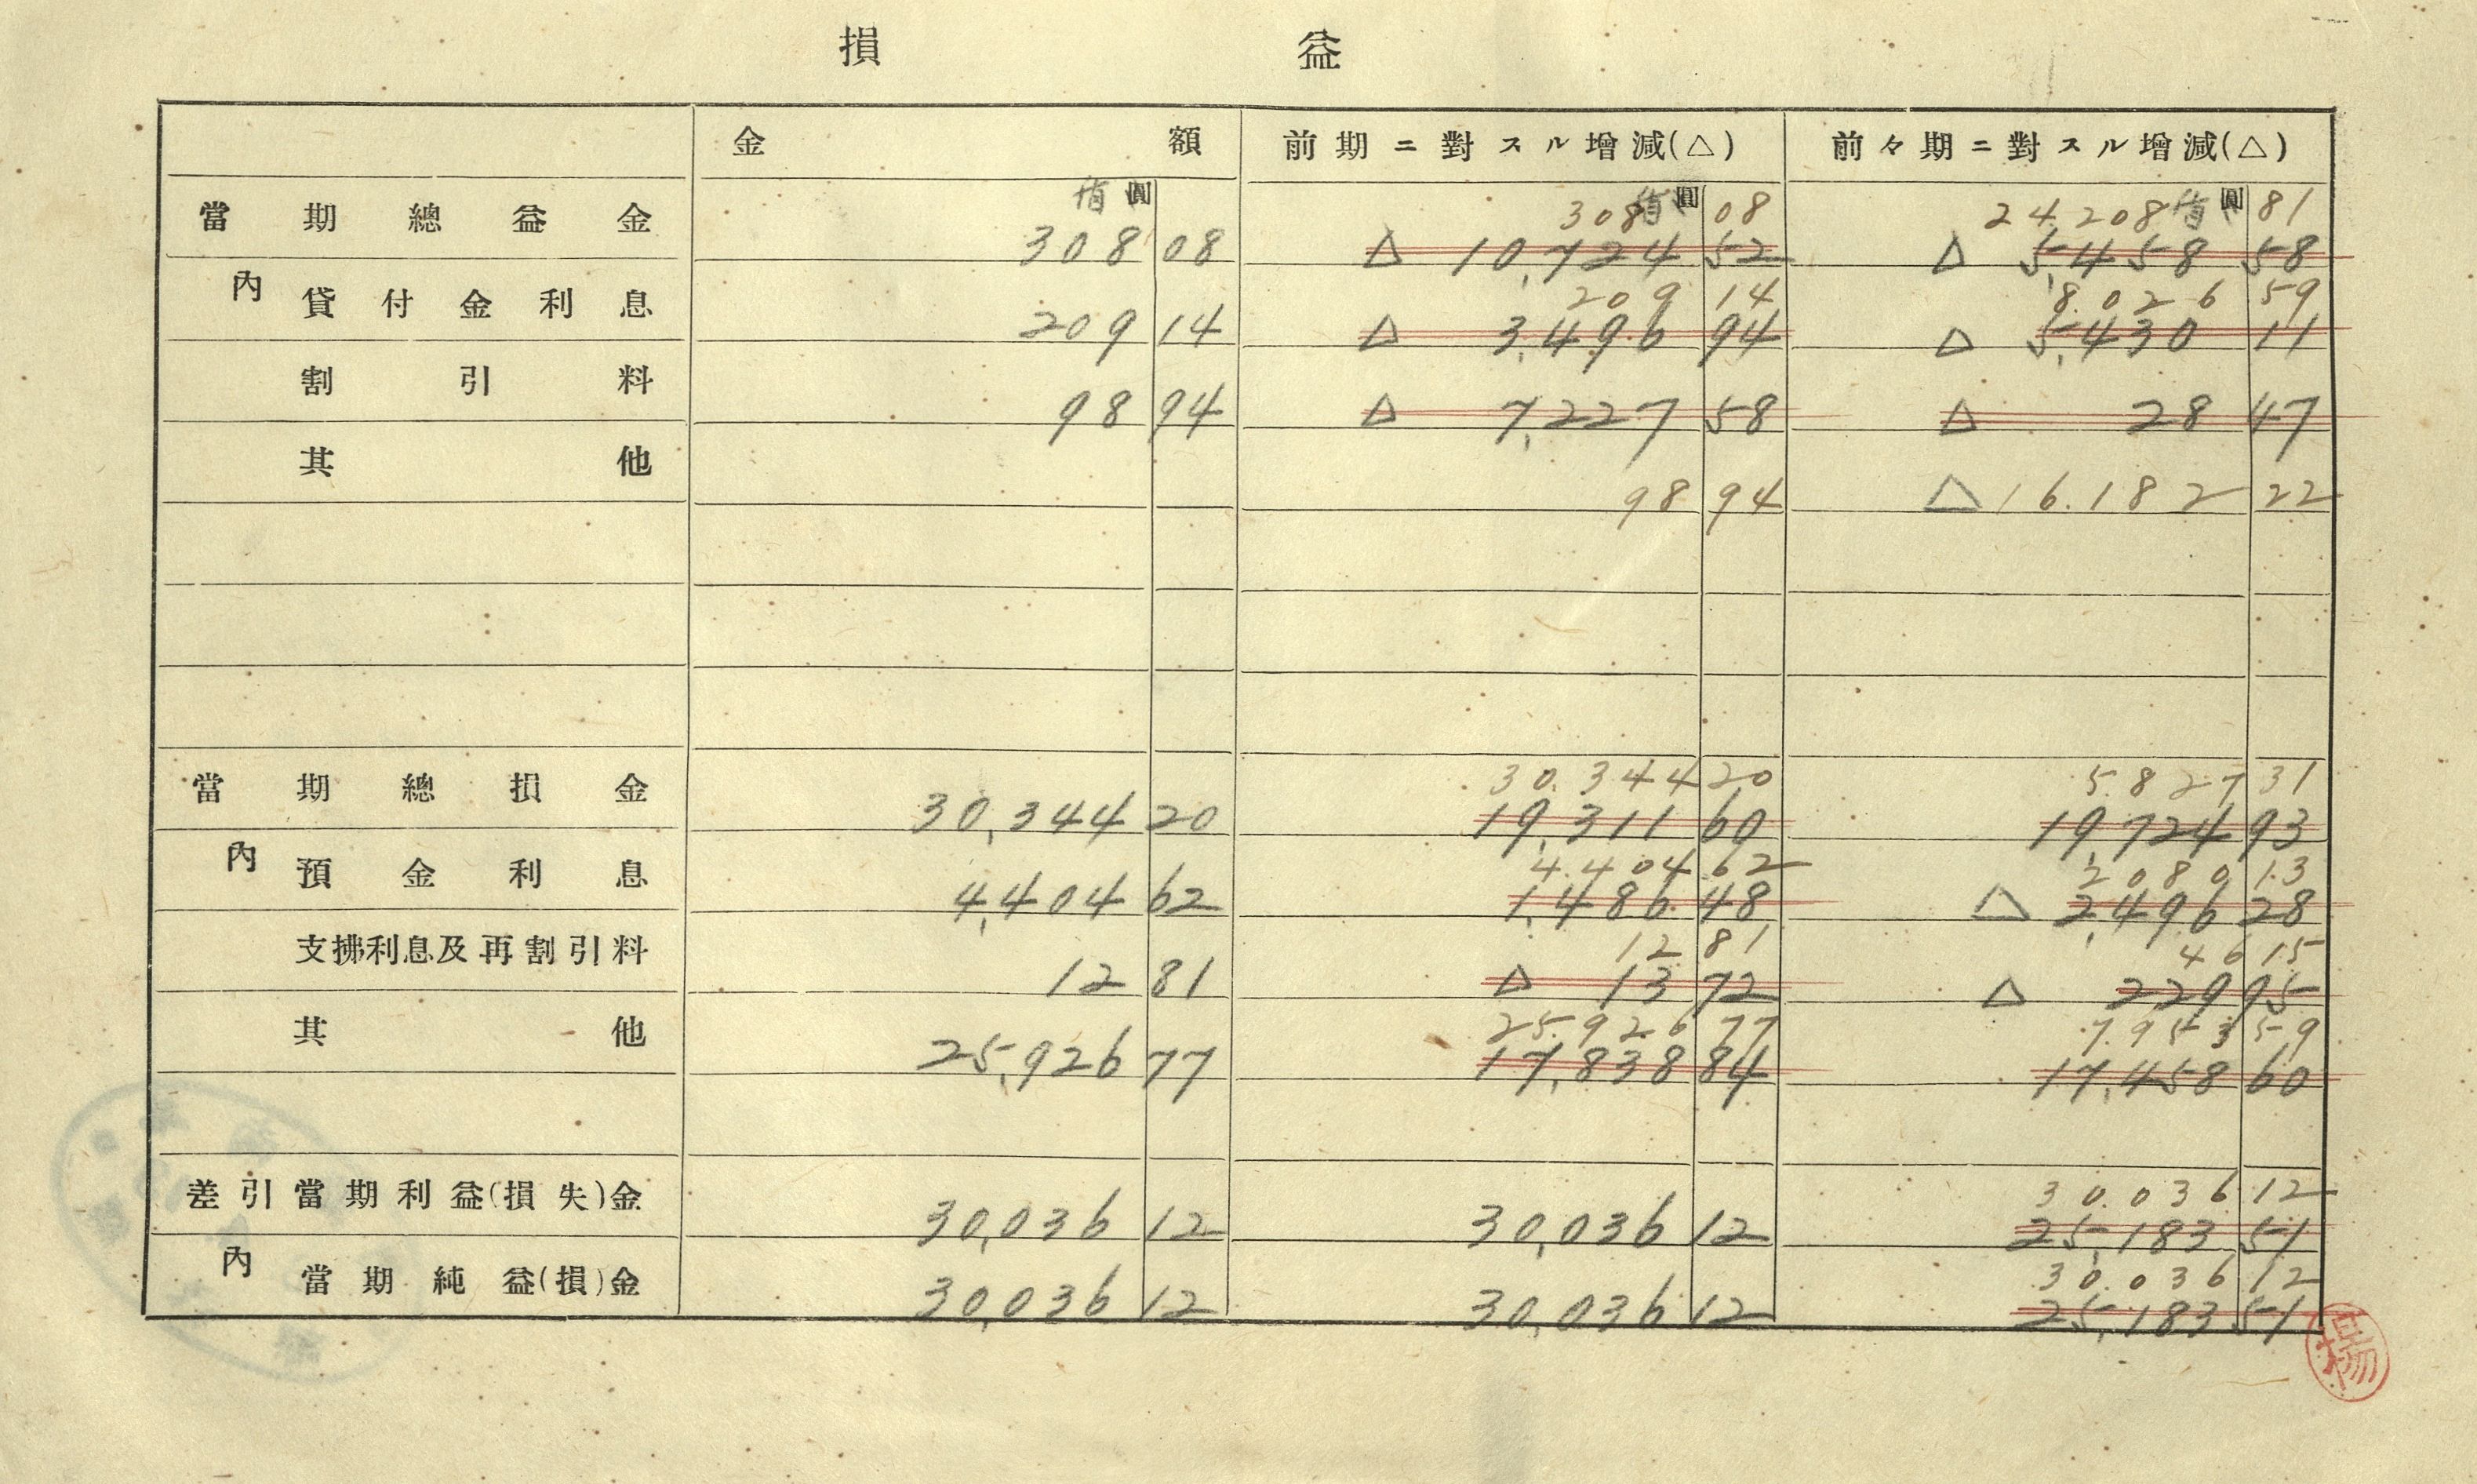 損益
金額 前期ニ對スル增減(△) 前々期ニ對スル增減(△)
圓 圓 圓
308 08 24,208 81
當期總益金 308 08 △ 10,724 52 △ 5,458 58
209 14 8.026 59
內 貸付金利息 209 14 △ 3,496 94 △ 5,430 11
割引料 98 94 △ 7,227 58 △ 28 47
其他 98 94 △ 16.182 22
30.344 20 5.827 31
當期總損金 30,344 20 19,311 60 19,724 93
4.404 62 2080 13
內 預金利息 4,404 62 1,486 48 △ 2,496 28
12 81 46 15
支拂利息及再割引料 12 81 △ 13 72 △ 229 95
25.926 77 7.953 59
其他 25,926 77 17,838 84 17,458 60
30.036 12
差引當期利益(損失)金 30,036 12 30,036 12 25,183 51
30.036 12
內 當期純益(損)金 30,036 12 30,036 12 25,183 51
楊